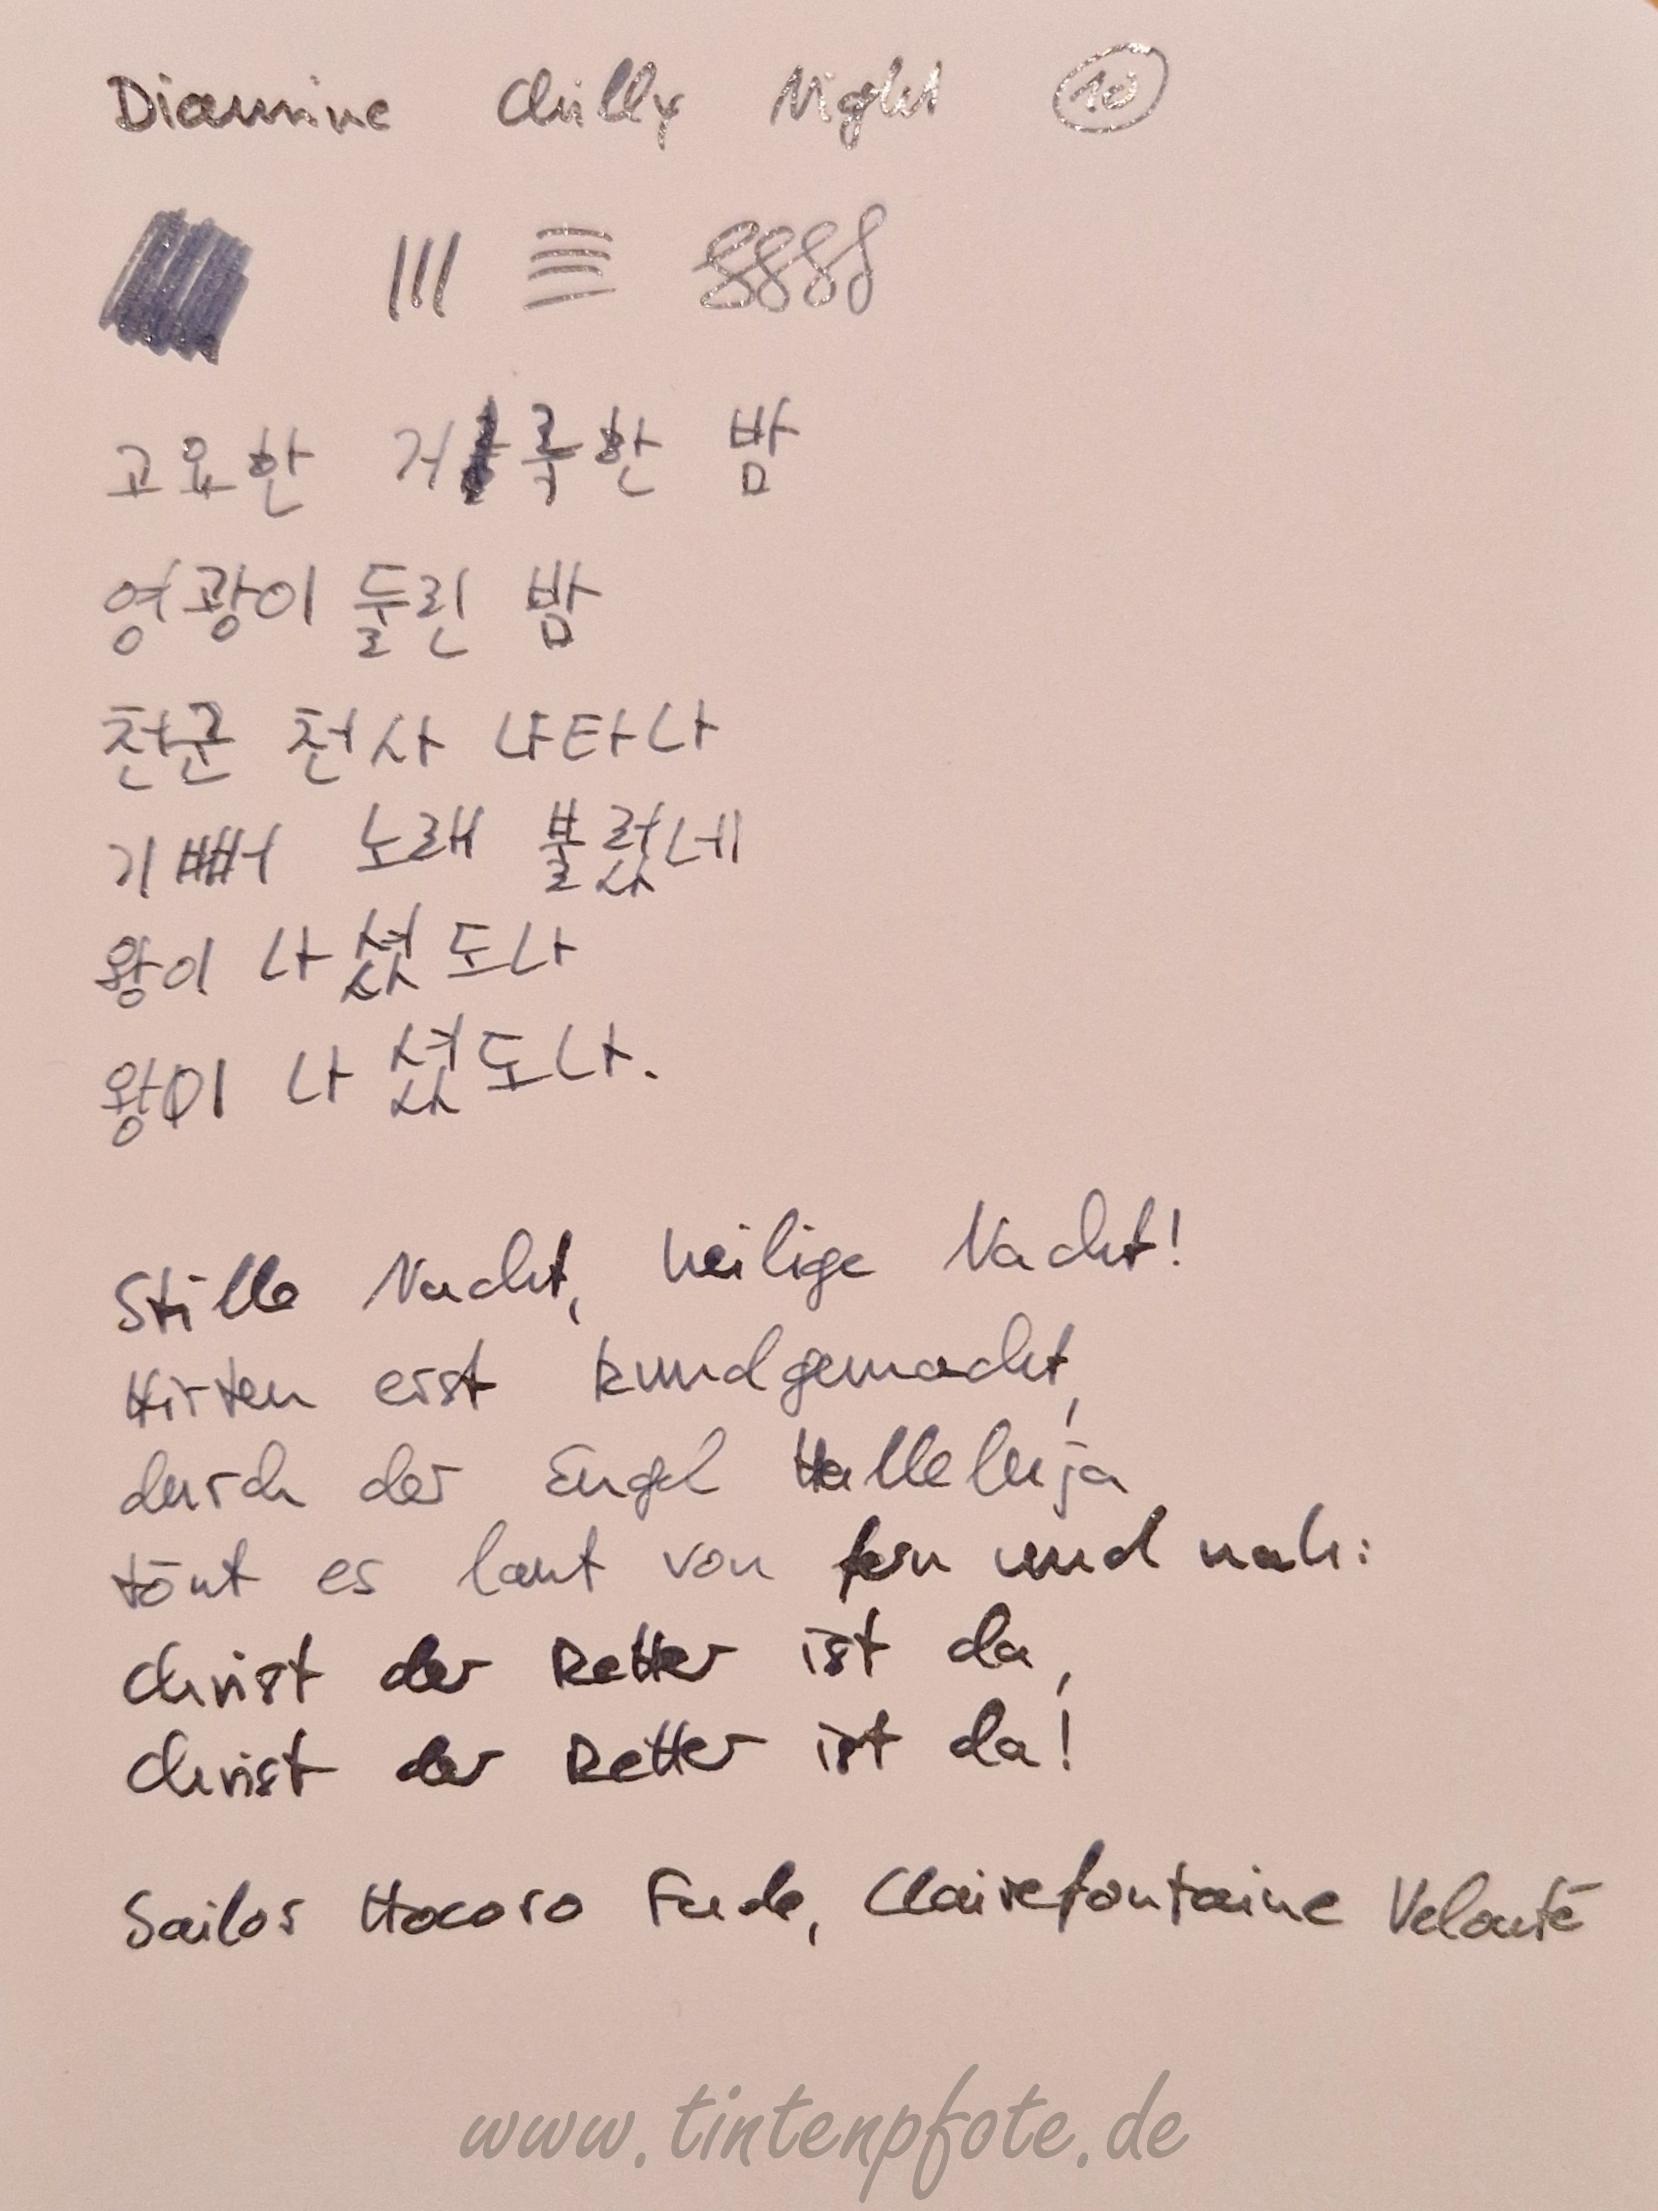 Diamine Chilly Night 10
고요한 거룩한 밤
영광이 둘린 밤
천군 천사 나타나
기뻐 노래 불렀네
왕이 나셨도나
왕이 나셨도나.
Stille Nacht, heilige Nacht!
Hirten erst kundgemacht,
durch der Engel Halleluja
tönt es laut von fern und nah:
Christ der Retter ist da,
Christ der Retter ist da!
Sailor Hocoro Fude, Clairefontaine Velouté
www.tintenpfote.de